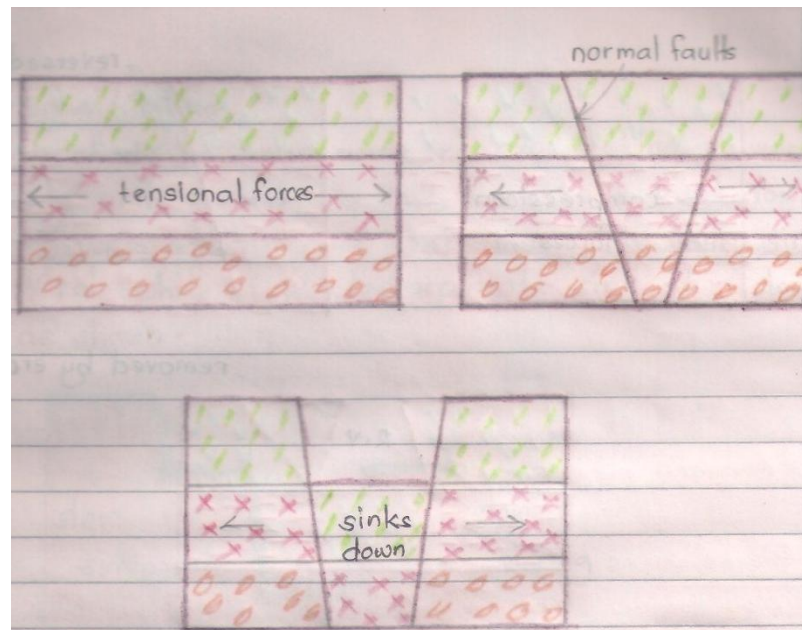 normal faults
tensional forces
sinks
down